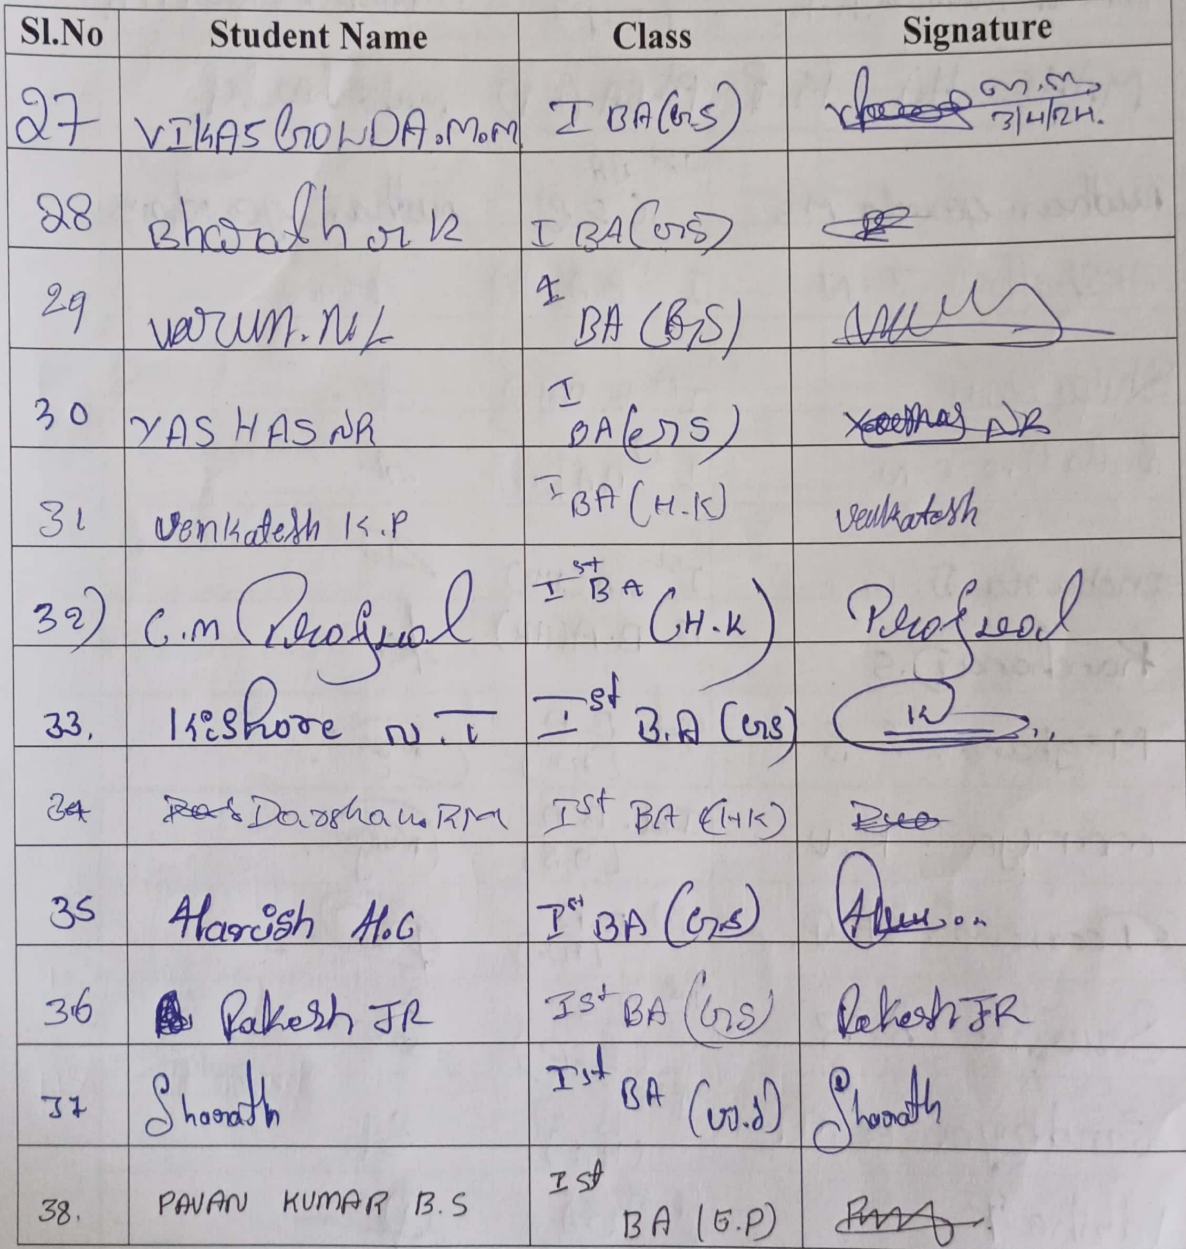 Sl.No Student Name Class Signature
27 VIKAS GOWDA.M.M I BA(GS) M.M 3/4/24.
28 Bharath G K I BA(GS)
29 Varun.N.L I BA (GS)
30 YASHAS NR I BA(GS) Yashas NR
31 Venkatesh K.P I BA (H.K) Venkatesh
32) C.M Prajwal Ist BA (H.K) Prajwal
33. Kishore N.T Ist B.A (GS) K
34 Darshan RM Ist BA (HK)
35 Harish H.G Ist BA (GS)
36 Rakesh JR Ist BA (GS) Rakesh JR
37 Sharath Ist BA (G.S) Sharath
38. PAVAN KUMAR B.S Ist BA (E.P)